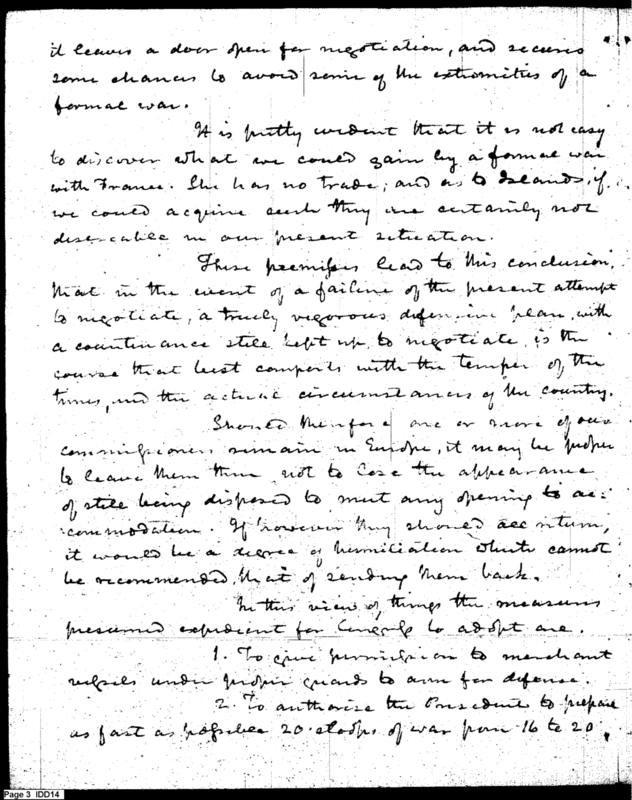 it leaves a door open for negotiation, and secures
some chances to avoid some of the extremities of a
formal war.
It is pretty evident that it is not easy
to discover what we could gain by a formal war
with France. She has no trade; and as to Islands, if
we could acquire such they are certainly not
desireable in our present situation.
These premisses lead to this conclusion,
that in the event of a failure of the present attempt
to negotiate, a truely vigorous defensive plan, with
a countenance still kept up to negotiate, is the
course that best comports with the temper of the
times, and the actual circumstances of the country.
Should therefore one or more of our
commissioners remain in Europe, it may be proper
to leave them there not to lose the appearance
of still being disposed to meet any opening to ac:
:commodation. If however they should all return,
it would be a degree of humiliation which cannot
be recommended, that of sending them back.
In this view of things the measures
presumed expedient for Congress to adopt are.
1. To give permission to merchant
vessels under proper guards to arm for defense.
2. To authorise the President to prepare
as fast as possible 20 sloops of war from 16 to 20
Page 3 IDD14